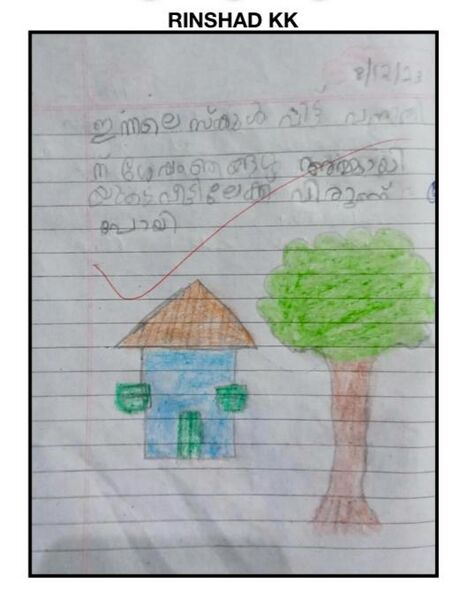 RINSHAD KK
8/12/23
ഇന്നലെ സ്കൂൾ വിട്ട് വന്നതി
ന് ശേഷം ഞങ്ങൾ
യുടെ വീട്ടിലേക്ക് വിരുന്ന്
പോയി